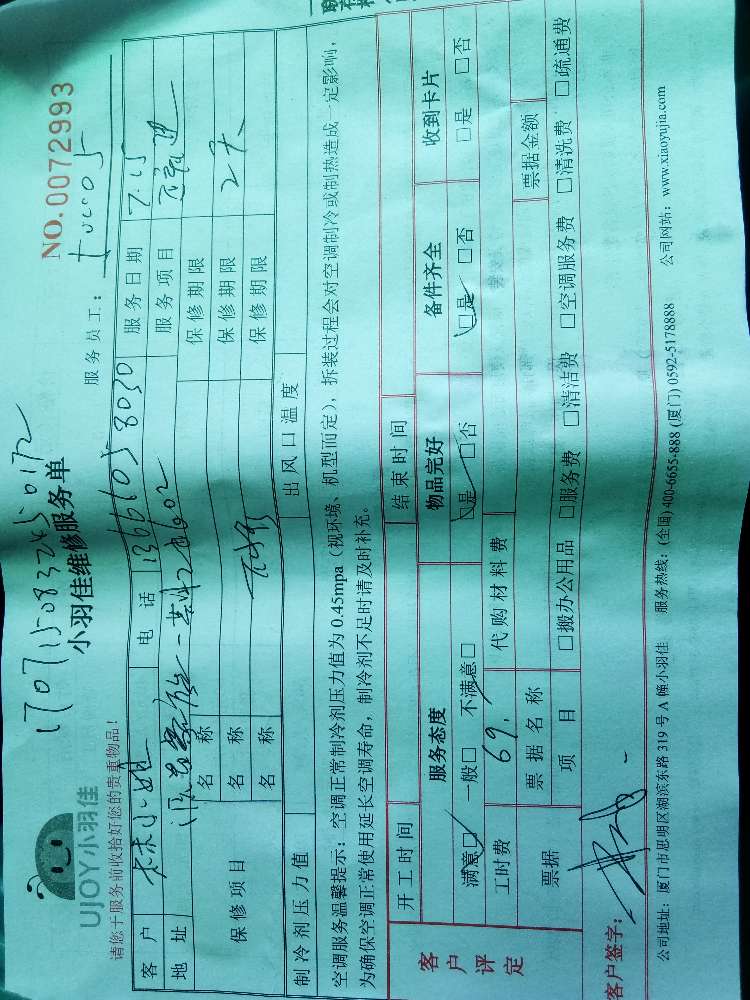 1707150832450172
NO.0072993
小羽佳维修服务单
UJOY小羽佳
请您于服务前收拾好您的贵重物品！
服务员工：
客户 小姐 电话 13661058030 服务日期 7.15
地址 服务项目
保修项目 名称 保修期限
名称 保修期限 2天
名称 保修期限
制冷剂压力值 出风口温度
空调服务温馨提示：空调正常制冷剂压力值为 0.45mpa（视环境、机型而定），拆装过程会对空调制冷或制热造成一定影响，
为确保空调正常使用延长空调寿命，制冷剂不足时请及时补充。
客户评定 开工时间 结束时间
服务态度 物品完好 备件齐全 收到卡片
满意□ 一般□ 不满意□ □是 □否 □是 □否 □是 □否
工时费 69. 代购材料费
票据 票据名称 票据金额
项目 □搬办公用品 □服务费 □清洁费 □空调服务费 □清洗费 □疏通费
客户签字：
公司地址：厦门市思明区湖滨东路 319 号 A 幢小羽佳 服务热线：(全国) 400-6655-888 (厦门) 0592-5178888 公司网站：www.xiaoyujia.com